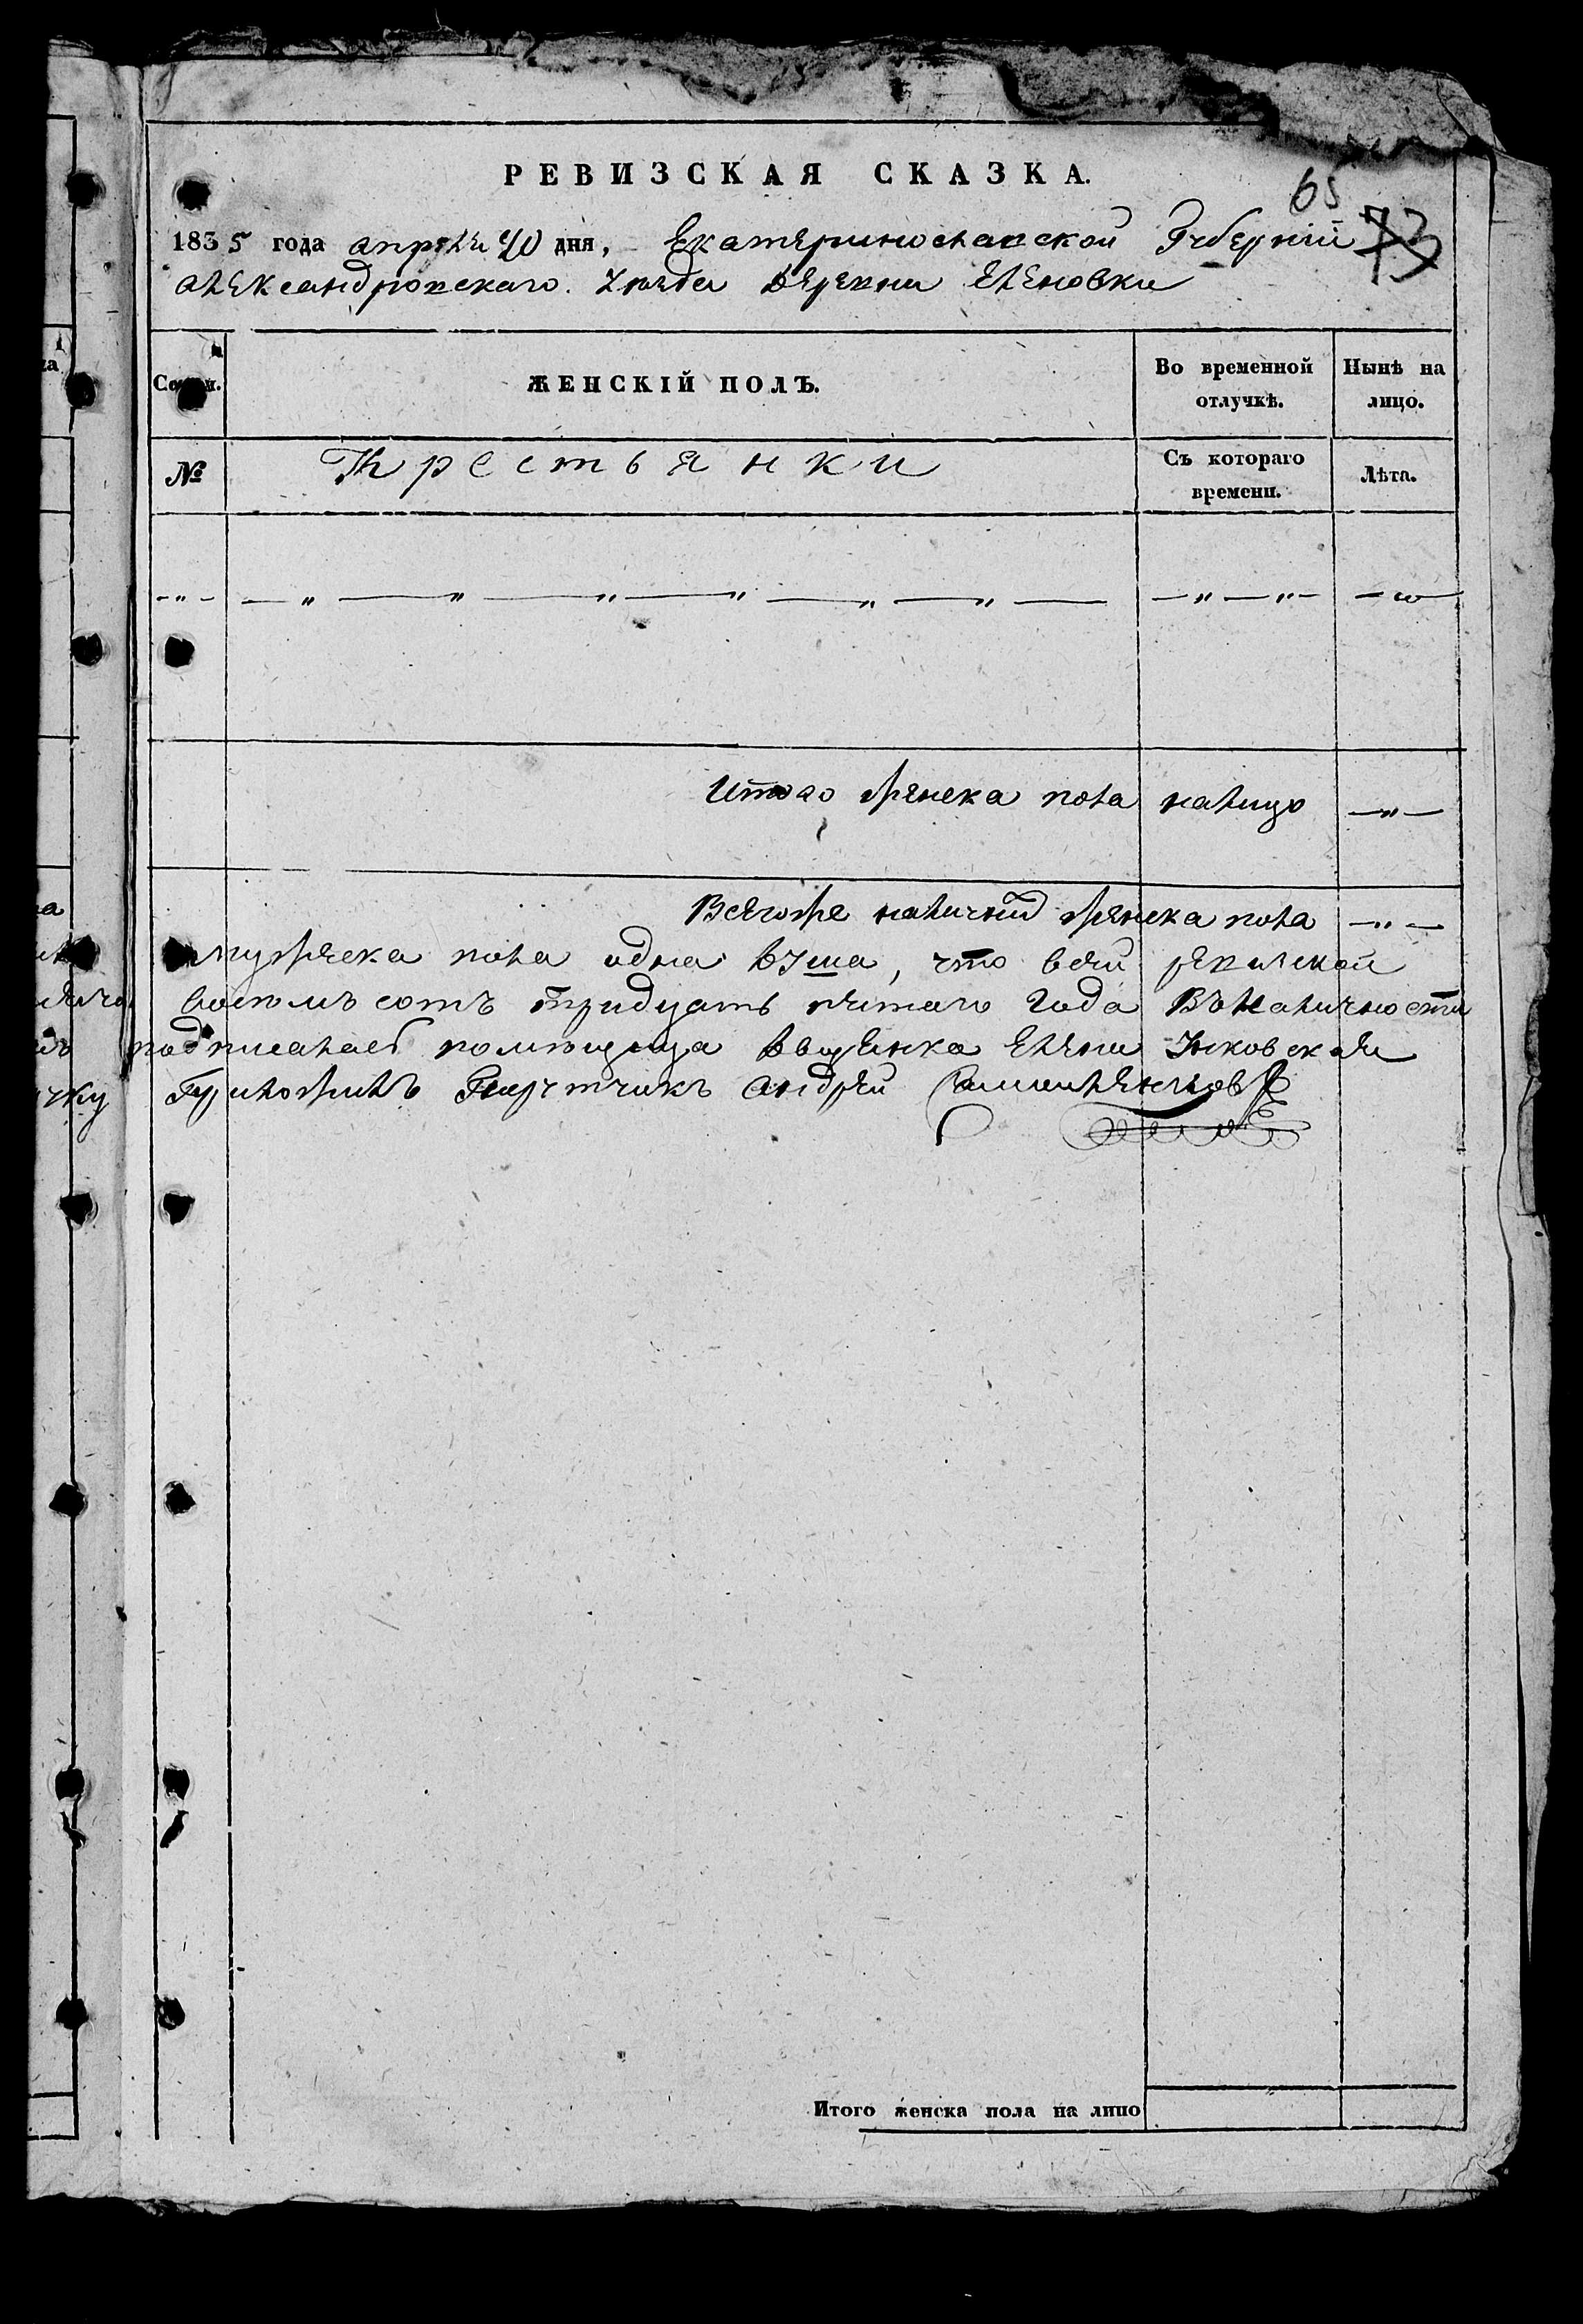 РЕВИЗСКАЯ СКАЗКА.
65
73
1835 года апреля 40 дня, Екатеринославской Губернии
Александровскаго Уезда Деревни Еленовки
Семьи.
ЖЕНСКІЙ ПОЛЪ.
Во временной отлучкѣ.
Нынѣ на лицо.
№
Крестьянки
Съ котораго времени.
Лѣта.
Итого женска пола налицо
Всегоже налично женска пола
мужеска пола одна душа, что всей ревизской
восемъ сотъ тридцать пятаго года Въ наличности
подписалъ помещица Елены
Андрей
Итого женска пола на лицо